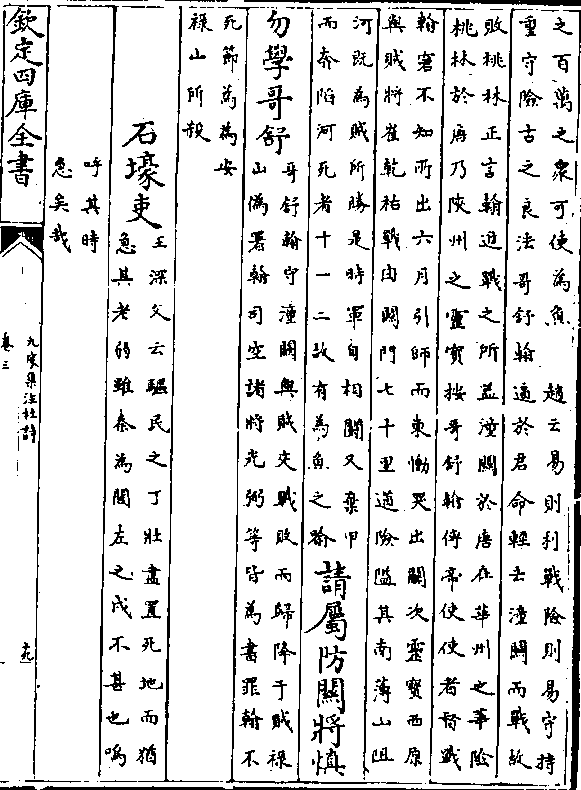 之百萬之衆可使為魚　趙云易則利戰險則易守持
重守險古之良法哥舒翰適於君命輕去潼關而戰故
敗桃林正言翰逆戰之所蓋潼關於唐在華州之華險
桃林於唐乃陝州之靈寶按哥舒翰傳帝使使者督戰
翰窘不知所出六月引師而東慟哭出關次靈寶西原
與賊將崔乾祐戰由關門七十里道險隘其南薄山阻
河既為賊所勝是時軍自相鬬又棄甲
而奔陷河死者十一二故有為魚之喻
請屬防關將慎
勿學哥舒
哥舒翰守潼關與賊交戰敗而歸降于賊祿
山偽署翰司空諸將光弼等皆為書罪翰不
死節焉為安
祿山所殺
石壕吏
王深父云驅民之丁壯盡置死地而猶
急其老弱雖秦為閭左之戍不甚也嗚
呼其時
急矣哉
欽定四庫全書
九家集注杜詩
卷三